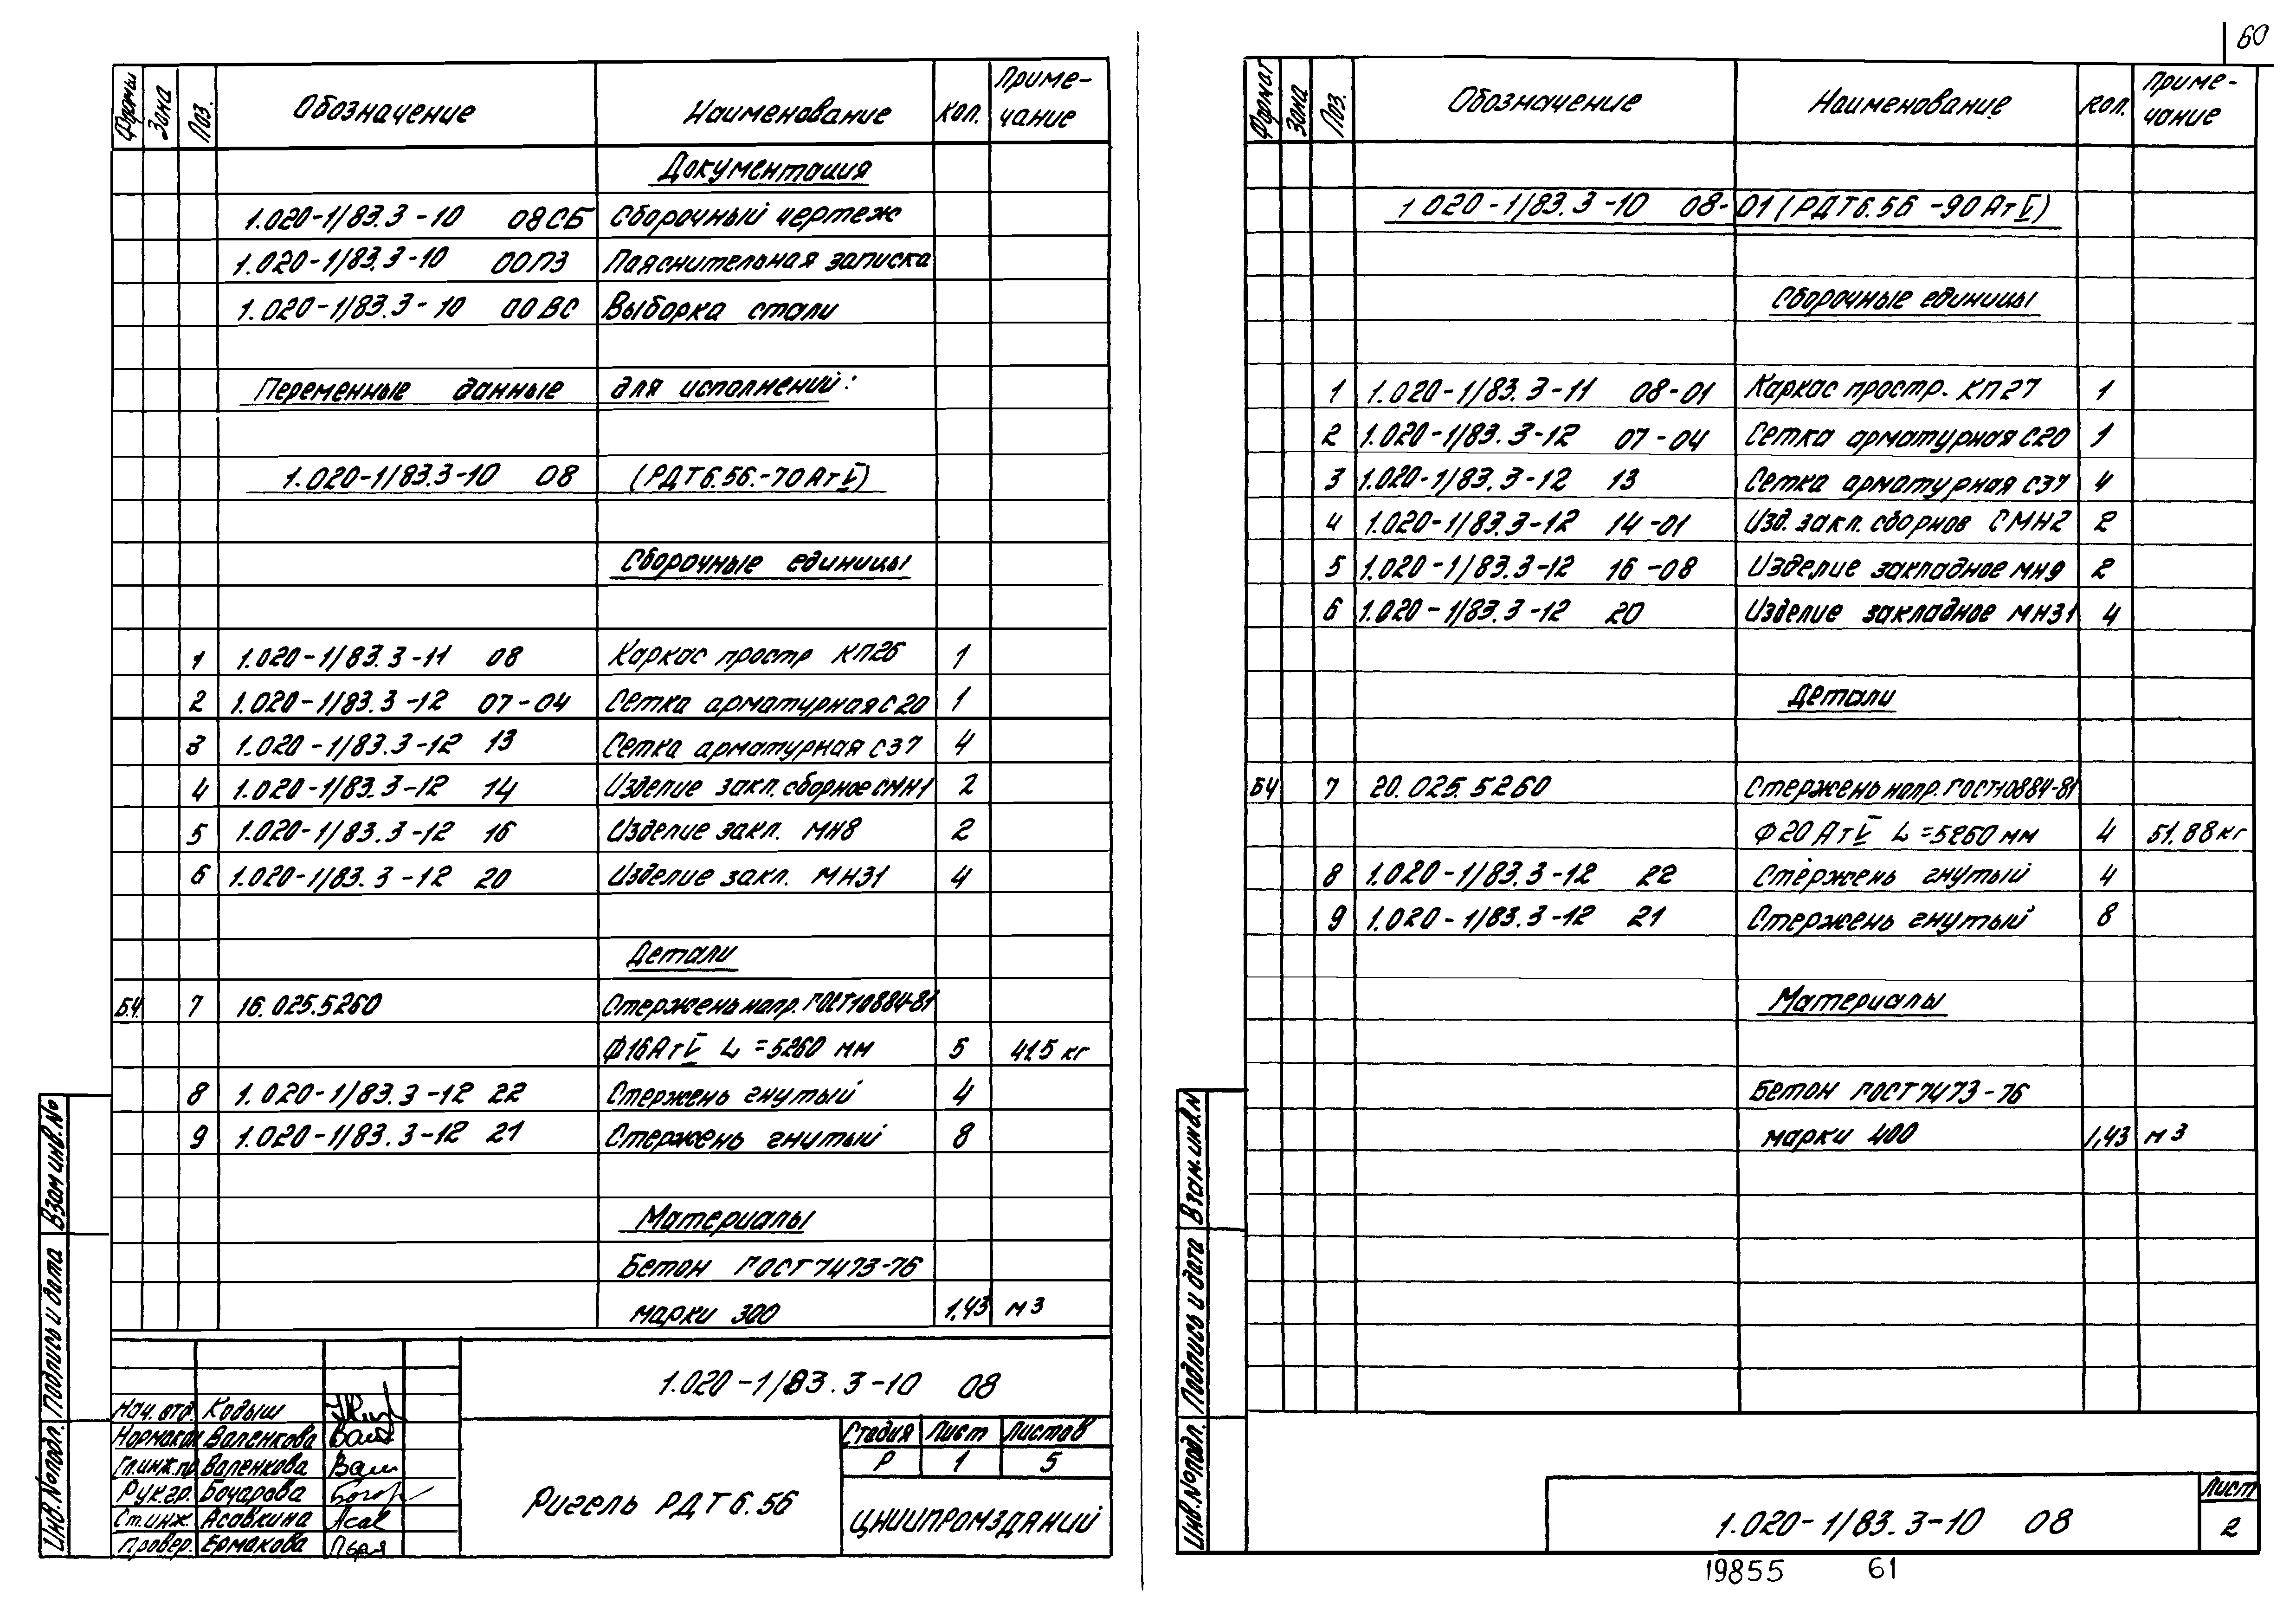 60
Формат Зона Поз. Обозначение Наименование Кол. Приме-
чание
Документация
1.020-1/83.3-10 08СБ Сборочный чертеж
1.020-1/83.3-10 00ПЗ Пояснительная записка
1.020-1/83.3-10 00ВС Выборка стали
Переменные данные для исполнений:
1.020-1/83.3-10 08 (РДТ6.56.-70АтV)
Сборочные единицы
1 1.020-1/83.3-11 08 Каркас простр КП26 1
2 1.020-1/83.3-12 07-04 Сетка арматурная С20 1
3 1.020-1/83.3-12 13 Сетка арматурная С37 4
4 1.020-1/83.3-12 14 Изделие закл. сборное СМН1 2
5 1.020-1/83.3-12 16 Изделие закл. МН8 2
6 1.020-1/83.3-12 20 Изделие закл. МН31 4
Детали
Б.Ч. 7 16.025.5260 Стержень напр. ГОСТ10884-81
Ф16АтV L=5260 мм 5 41.5 кг
8 1.020-1/83.3-12 22 Стержень гнутый 4
9 1.020-1/83.3-12 21 Стержень гнутый 8
Материалы
Бетон ГОСТ7473-76
марки 300 1,43 м3
Взам инв.№
Подпись и дата
Инв.№подл.
Нач. отд. Кодыш
Нормокон Валенкова
Гл.инж.пр Валенкова
Рук.гр. Бочарова
Ст.инж. Асавкина
Провер. Ермакова
1.020-1/83.3-10 08
Ригель РДТ6.56
Стадия Лист Листов
Р 1 5
ЦНИИПРОМЗДАНИЙ
Формат Зона Поз. Обозначение Наименование Кол. Приме-
чание
1.020-1/83.3-10 08-01 (РДТ6.56-90АтV)
Сборочные единицы
1 1.020-1/83.3-11 08-01 Каркас простр. КП27 1
2 1.020-1/83.3-12 07-04 Сетка арматурная С20 1
3 1.020-1/83.3-12 13 Сетка арматурная С37 4
4 1.020-1/83.3-12 14-01 Изд. закл. сборнов СМН2 2
5 1.020-1/83.3-12 16-08 Изделие закладное МН9 2
6 1.020-1/83.3-12 20 Изделие закладное МН31 4
Детали
БЧ 7 20.025.5260 Стержень напр. ГОСТ10884-81
Ф20АтV L=5260 мм 4 51.88 кг
8 1.020-1/83.3-12 22 Стержень гнутый 4
9 1.020-1/83.3-12 21 Стержень гнутый 8
Материалы
Бетон ГОСТ7473-76
марки 400 1,43 м3
Взам.инв.№
Подпись и дата
Инв.№подл.
1.020-1/83.3-10 08
Лист
2
19855 61